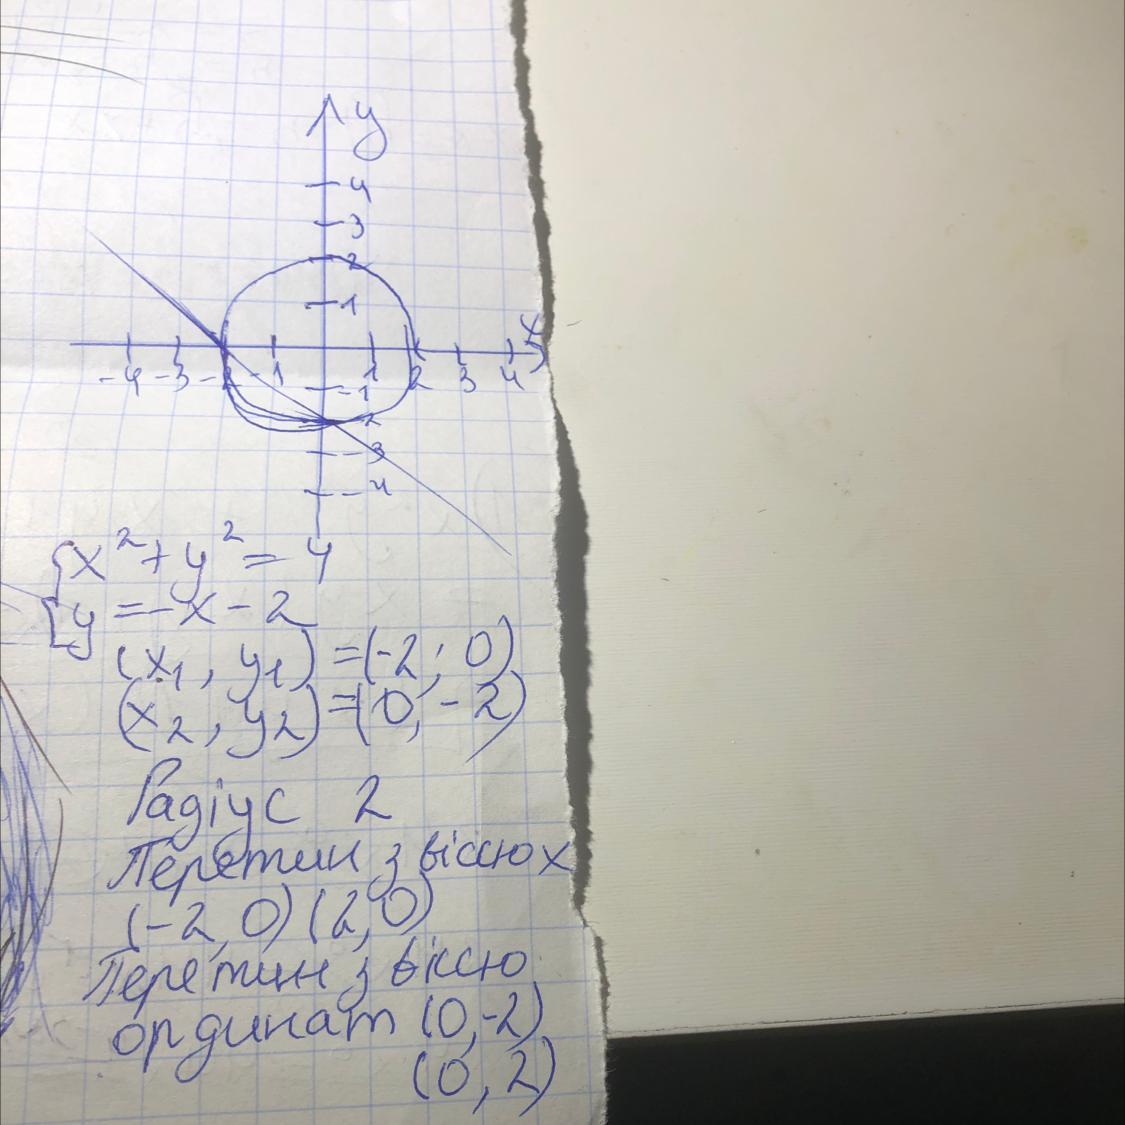 y
4
3
2
1
x
-4 -3 -2 -1 1 2 3 4
-1
-2
-3
-4
x² + y² = 4
y = -x - 2
(x₁, y₁) = (-2; 0)
(x₂, y₂) = (0, -2)
Радіус 2
Перетин з віссю х
(-2, 0) (2, 0)
Перетин з віссю
ординат (0, -2)
(0, 2)